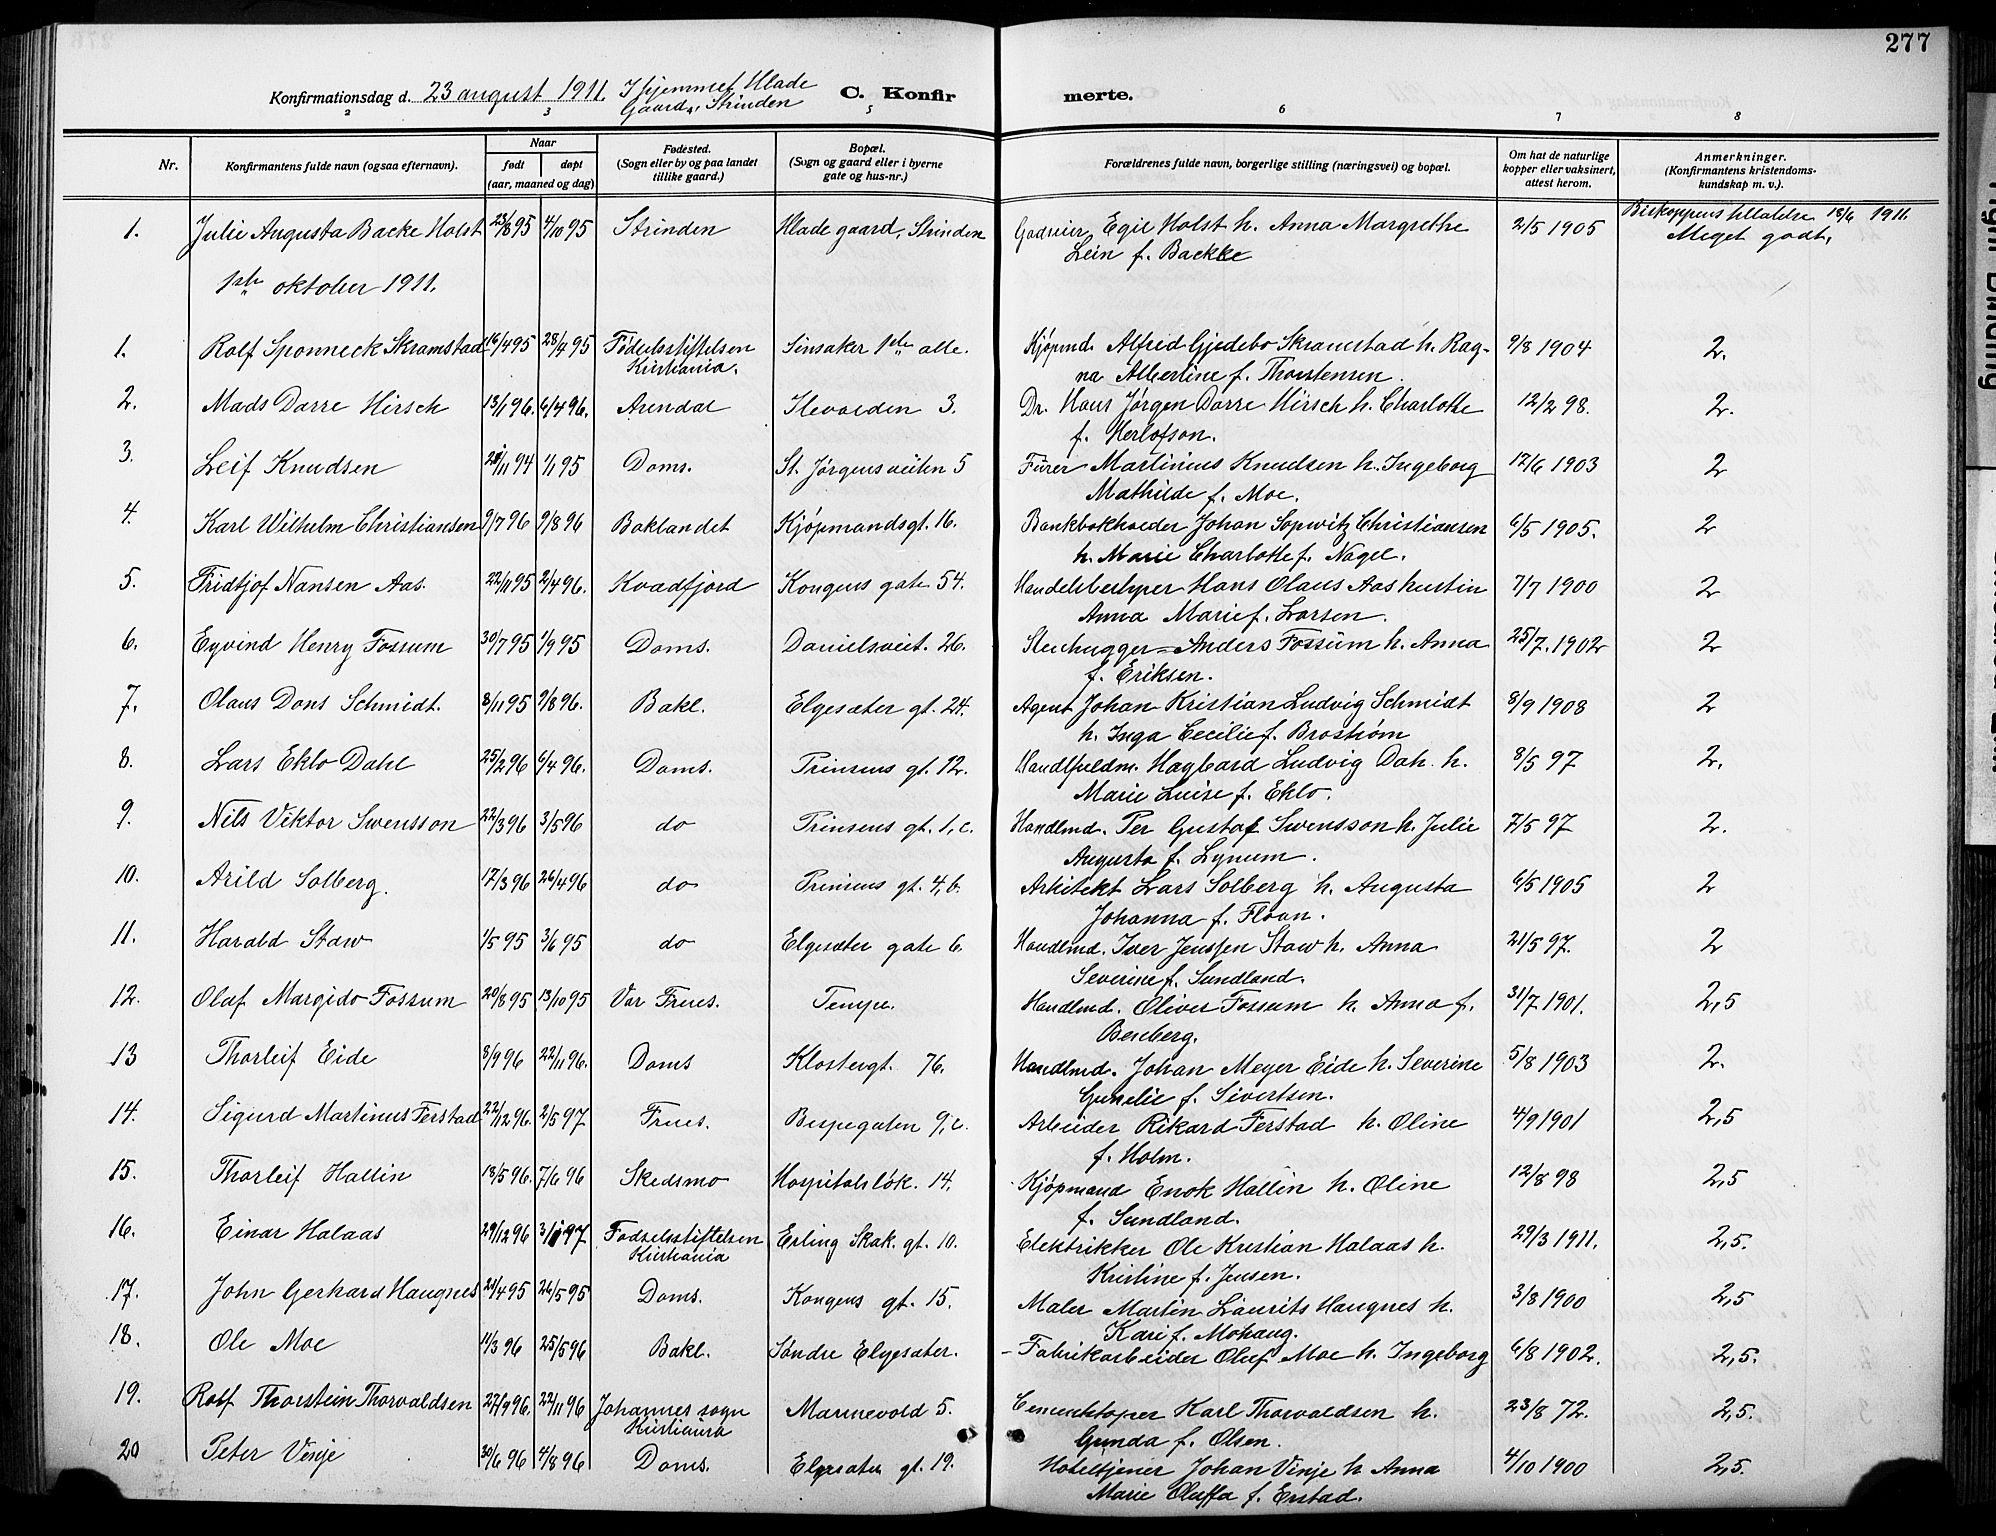 277
Konfirmationsdag d. 23 august 1911. I hjemmet Hlade
Gaard, Strinden
C. Konfir merte.
2 3 5 6 7 8
Nr. Konfirmantens fulde navn (ogsaa efternavn). Naar født døpt (aar, maaned og dag) Fødested. (Sogn eller by og paa landet tillike gaard.) Bopæl. (Sogn og gaard eller i byerne gate og hus-nr.) Forældrenes fulde navn, borgerlige stilling (næringsvei) og bopæl. Om hat de naturlige kopper eller vaksinert, attest herom. Anmerkninger. (Konfirmantens kristendoms-kundskap m. v.).
1. Julie Augusta Backe Holst 23/8 95 4/10 95 Strinden Hlade gaard, Strinden Godseier Egil Holst h. Anna Margrethe 2/5 1905 Biskoppens tilladelse 18/6 1911.
Lein f. Backke Meget godt,
1ste oktober 1911.
1. Rolf Sponneck Skramstad 16/4 95 28/4 95 Fødselsstiftelsen Sinsaker 1ste alle. Kjøpmd. Alfred Gjedebo Skramstad h. Rag- 9/8 1904 2.
Kristiania. na Albertine f. Thorstensen.
2. Mads Darre Hirsch 13/1 96. 6/4 96. Arendal Ilevolden 3. Dr. Hans Jørgen Darre Hirsch h. Charlotte 12/2 98. 2.
f. Herlofson.
3. Leif Knudsen /11 94 1/1 95 Doms. St. Jørgensveiten 5 Fürer Martinius Knudsen h. Ingeborg 12/6 1903 2
Mathilde f. Moe.
4. Karl Wilhelm Christiansen 9/7 96 9/8 96 Baklandet Kjøpmandsgt. 16. Bankbokholder Johan Sopwitz Christiansen 6/5 1905. 2
h. Marie Charlotte f. Nagel.
5. Fridtjof Nansen Aas. 22/11 95 2/4 96. Kvadfjord Kongens gate 54. Handelsbestyrer Hans Olaus Aas hustru 7/7 1900 2
Anna Marie f. Larsen.
6. Eyvind Henry Fossum 30/7 95 1/9 95 Doms. Danielsveit. 26. Stenhugger Anders Fossum h. Anna 25/7. 1902 2
f. Eriksen.
7. Olaus Dons Schmidt. 8/11 95 9/8 96. Bakl. Elgesæter gt. 24. Agent Johan Kristian Ludvig Schmidt 8/9 1908 2
h. Inga Cecilie f. Brostrøm
8. Lars Eklo Dahl 25/2 96 6/4 96. Doms. Prinsens gt. 12. Handlfuldm. Hagbard Ludvig Dah. h. 8/5 97 2.
Marie Luise f. Eklo.
9. Nils Viktor Swensson 22/3 96 3/5 96 do Prinsens gt. 1, c. Handlmd. Per Gustaf Swensson h. Julie 7/5 97 2.
Augusta f. Lynum.
10. Arild Solberg. 17/3 96 26/4 96 do Prinsens gt. 4, b. Arkitekt Lars Solberg h. Augusta 6/5 1905 2
Johanna f. Floan.
11. Harald Staw 1/5 95 3/6 95 do Elgesæter gate 6. Handlmd. Iver Jenssen Staw h. Anna 21/5 97. 2
Severine f. Sundland.
12. Olaf Margido Fossum 20/8 95 13/10 95 Vor Frues. Tempe. Handlmd. Oliver Fossum h. Anna f. 31/7 1901. 2,5
Benberg.
13 Thorleif Eide 8/9 96 22/11 96. Doms Klostergt. 76. Handlmd. Johan Meyer Eide h. Severine 5/8 1903 2.
Gunelie f. Sivertsen.
14. Sigurd Martinus Ferstad 22/12 96. 2/5 97 Frues. Bispegaten 9, c. Arbeider Rikard Ferstad h. Oline 4/9 1901 2,5
f. Holm.
15. Thorleif Hallin 13/5 96. 7/6 96 Skedsmo Hospitalsløk. 14. Kjøpmand Enok Hallin h. Oline 12/8 98 2,5
f. Sundland.
16. Einar Halaas 29/12 96 3/1 97 Fødselsstiftelsen Erling Skak. gt. 10. Elektrikker Ole Kristian Halaas h. 29/3 1911. 2,5.
Kristiania Kristine f. Jensen.
17. John Gerhard Haugnes 21/4 95 26/5 95 Doms. Kongens gt. 15. Maler Martin Laurits Haugnes h. 3/8 1900 2,5
Kari f. Mohaug.
18. Ole Moe 11/3 96 25/5 96 Bakl. Søndre Elgesæter. Fabrikarbeider Oluf Moe h. Ingeborg 6/8 1902. 2,5.
19. Rolf Thorstein Thorvaldsen 27/9 96. 22/11 96 Johannes sogn Marinevold 5. Cementstøper Karl Thorvaldsen h. 23/8 72. 2,5.
Kristiania Gunda f. Olsen.
20 Peter Vinje 30/6 96 4/8 96 Doms. Elgesæter gt. 19. Hoteltjener Johan Vinje h. Anna 4/10 1900 2,5.
Marie Oluffa f. Erstad.